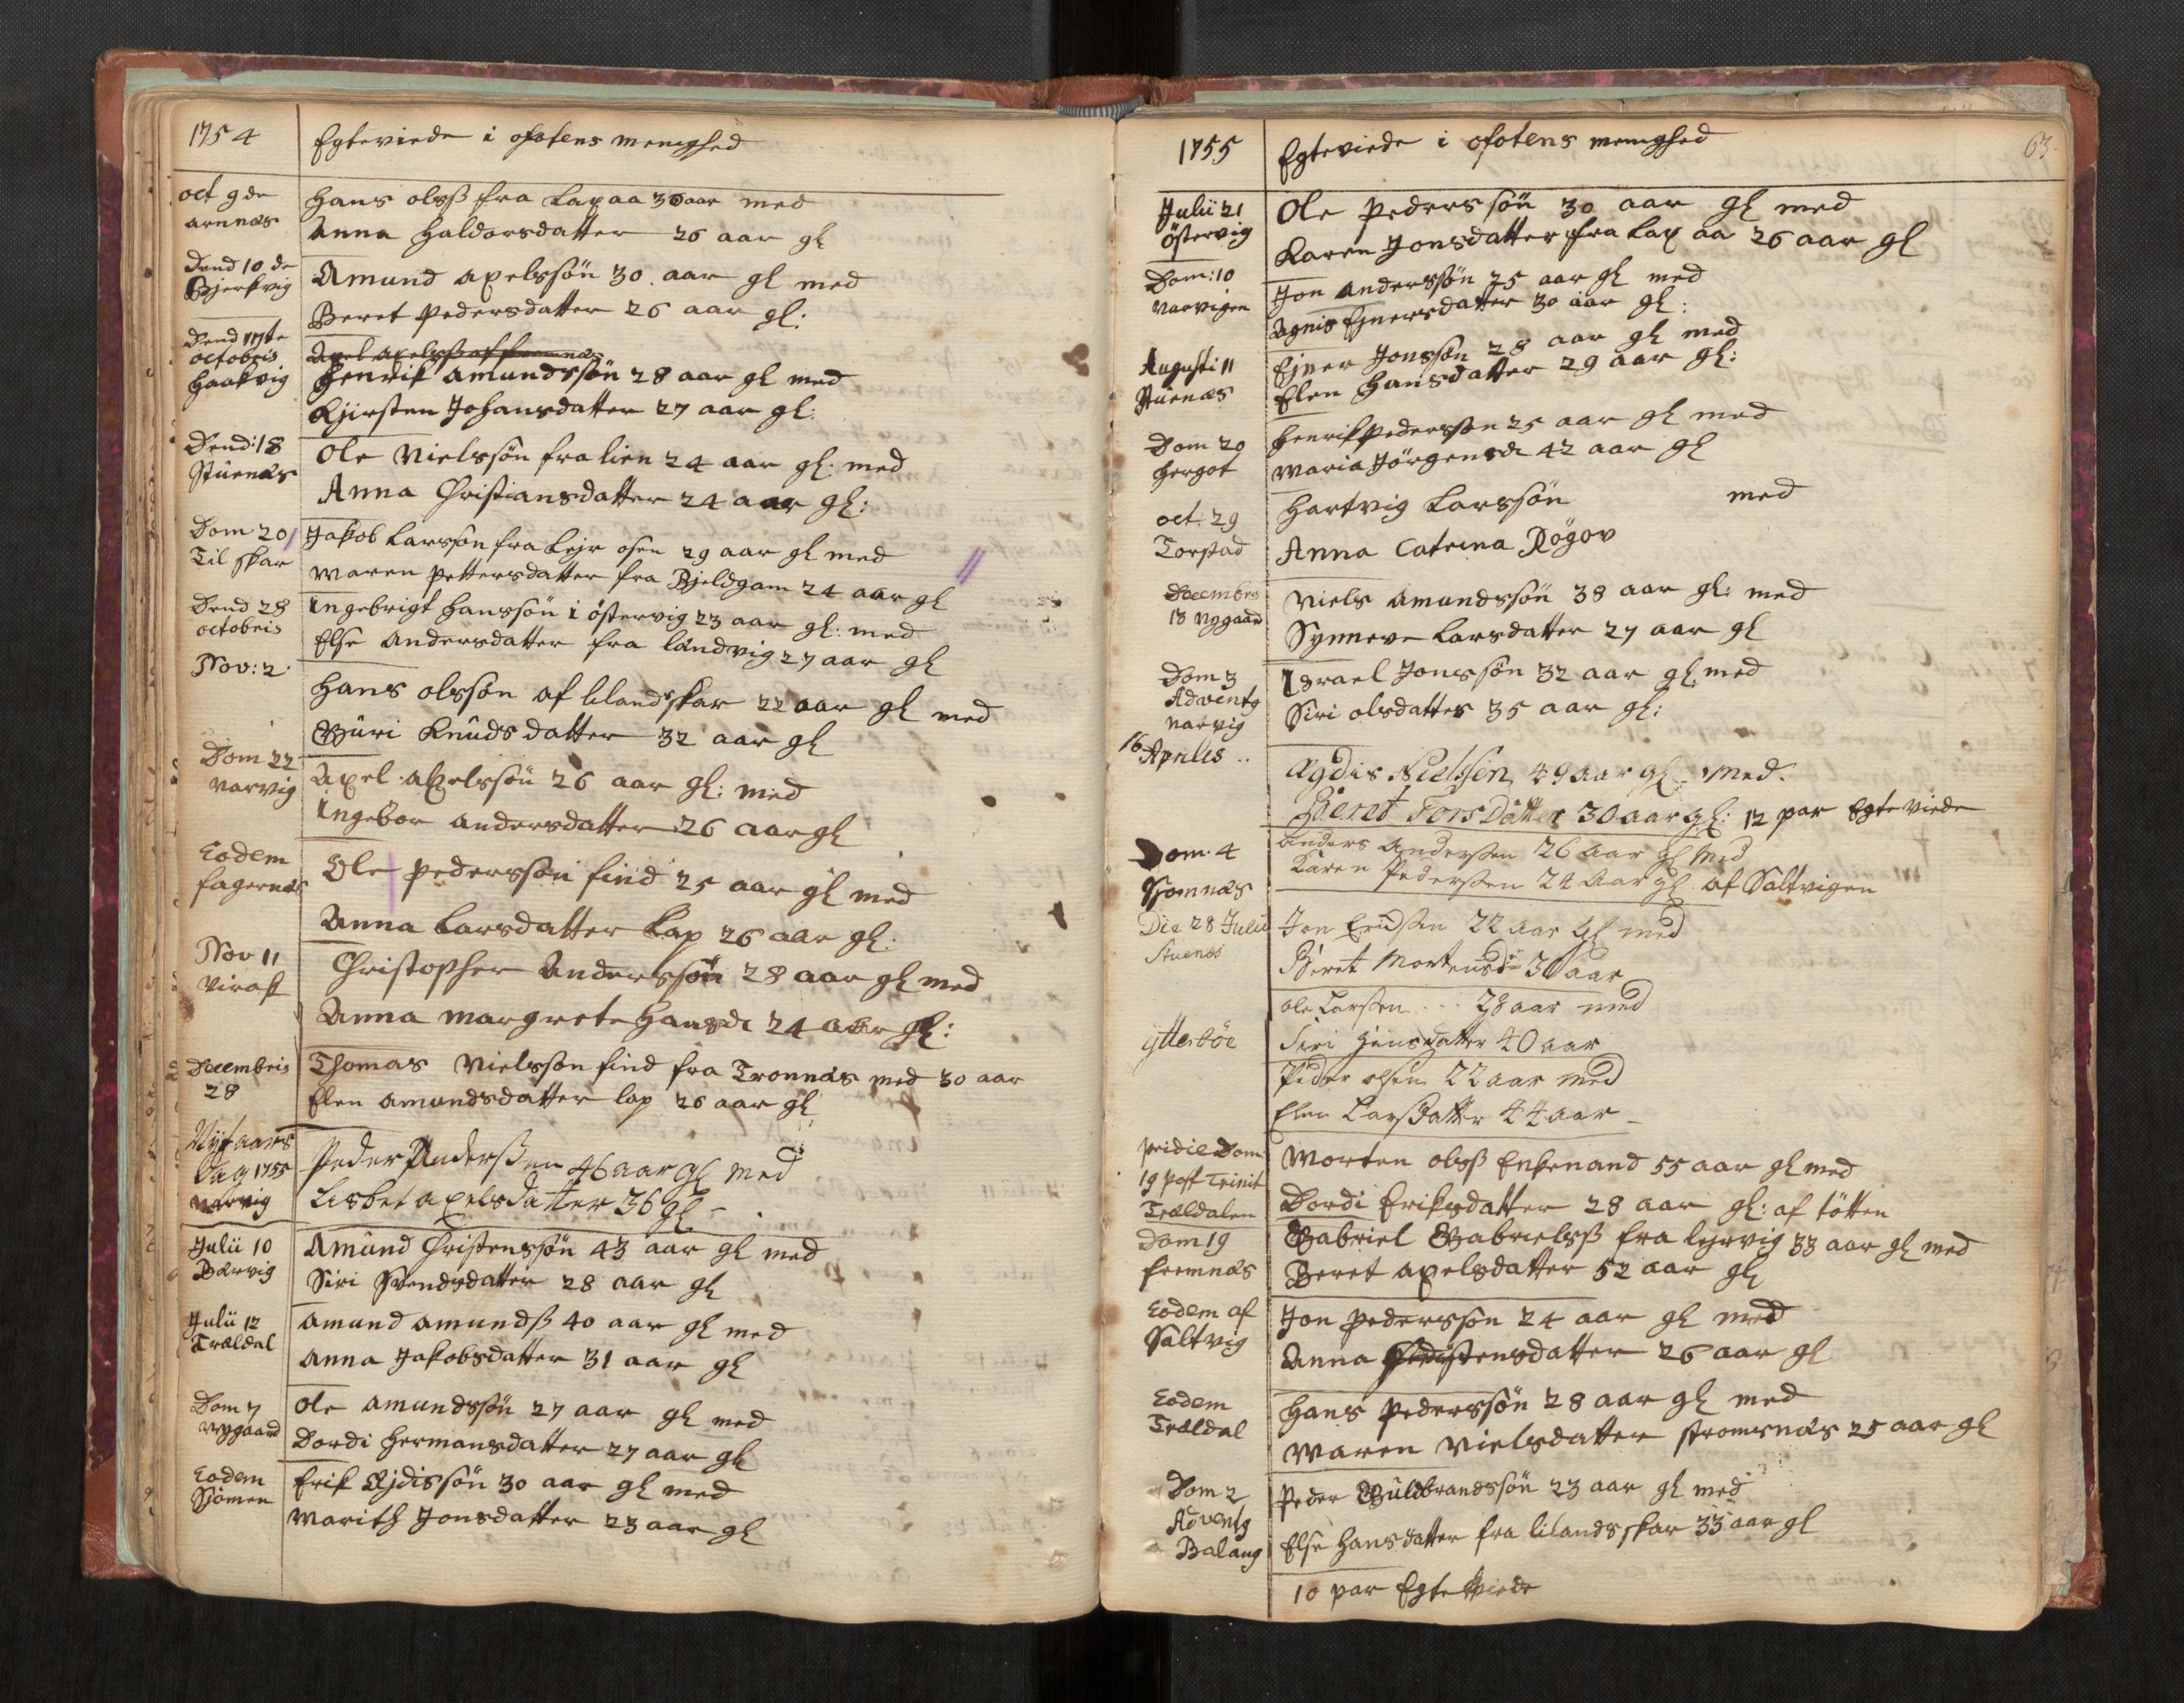 1754
Egteviede i ofotens menighed
oct 9de
arnnæs
Hans olsß fra Lapaa 30 aar med
Anna Haldorsdatter 26 aar gl
Dend 10 de
Bjerkvig
Amund axelssøn 30 aar gl med
Beret Pedersdatter 26 aar gl:
Dend 17te
octobris
Haakvig
Axel axelsß af
Henrik Amundssøn 28 aar gl med
Kjirsten Johansdatter 27 aar gl:
Dend: 18
Stuenæs
Ole Nielssøn fra lien 24 aar gl: med
Anna Christiansdatter 24 aar gl:
Dom 20
Til skar
Jakob Larssøn fra Lejr osen 29 aar gl med
Maren Pettersdatter fra Bjeldgam 24 aar gl
Dend 28
octobris
Ingebrigt Hanssøn i östervig 23 aar gl: med
Else Andersdatter fra låndvig 27 aar gl
Nov: 2
Hans olssøn af lilandskar 22 aar gl med
Guri Knudsdatter 32 aar gl
Dom 22
Narvig
Axel axelssøn 26 aar gl: med
Ingebor andersdatter 26 aar gl
Eodem
fagernæs
Ole Pederssøn find 25 aar gl med
Anna Larsdatter Lap 26 aar gl:
Nov 11
Virak
Christopher Anderssøn 28 aar gl med
Anna margrete Hansdr 24 aar gl:
Decembris
28
Thomas Nielssøn find fra Tronnæs med 30 aar
Elen amundsdatter lap 26 aar gl
Nytaars
Dag 1755
Narvig
Peder Anderßen 46 aar gl med
Lisbet axelsdatter 36 gl
Julii 10
Barvig
Amund Christenssøn 43 aar gl med
Siri Svendsdatter 28 aar gl
Julii 12
Traldal
Amund amundsß 40 aar gl med
Anna Jakobsdatter 31 aar gl
Dom 7
Nygaard
Ole amundssøn 27 aar gl med
Dordi Hermansdatter 27 aar gl
Eodem
Sjomen
Erik Ejdissøn 30 aar gl med
Marith Jonsdatter 23 aar gl
1755
Egteviede i ofotens menighed
63.
Julii 21
östervig
Ole Pederssøn 30 aar gl med
Karen Jonsdatter fra Lap aa 26 aar gl
Dom: 10
Narvigen
Jon anderssøn 25 aar gl med
Agnis Ejnersdatter 30 aar gl:
Augusti 11
Stuenæs
Ejner Jonssøn 28 aar gl med
Elen Hansdatter 29 aar gl:
Dom 20
Hergot
Henrik Pederssøn 25 aar gl med
Maria Jörgensdr 42 aar gl
oct. 29
Torstad
Hartvig Larssøn med
Anna Catrina Rögov
Decembris
13 Nygaard
Niels amundssøn 38 aar gl: med
Synneve Larsdatter 27 aar gl
Dom 3
Adventg
Narvig
Israel Jonssøn 32 aar gl: med
Siri olsdatter 35 aar gl:
16 Aprilis ..
Ægdis Nielssen 49 aar gl: med.
Beret Tors Datter 30 aar gl: 12 par Egteviede
Dom. 4
Sjomnæs
Anders Anderßen 26 aar gl Med
Karen Pederßen 24 Aar gl. af Saltvigen
Die 28 Julii
Stuenæs
Jon 22 aar gl med
Beret Mortensdr 30 aar
Ole Larßen ... 28 aar med
ytterböe
Siri datter 40 aar
Peder olsen 22 aar med
Elen Larsdatter 44 aar
pridie Dom
19 post Trinit
Traldalen
Morten olsß Enkemand 55 aar gl med
Dordi Eriksdatter 28 aar gl: af tötten
Dom 19
fremnæs
Gabriel Gabrielsß fra lejrvig 33 aar gl med
Beret axelsdatter 52 aar gl
Eodem af
Saltvig
Jon Pederssøn 24 aar gl med
Anna Christensdatter 26 aar gl
Eodem
Traldal
Hans Pederssøn 28 aar gl med
Maren Nielsdatter Stromsnæs 25 aar gl
Dom 2
Adventg
Balang
Peder Guldbrandssøn 23 aar gl med
Else Hansdatter fra lilandsskar 33 aar gl
10 par Egteviede